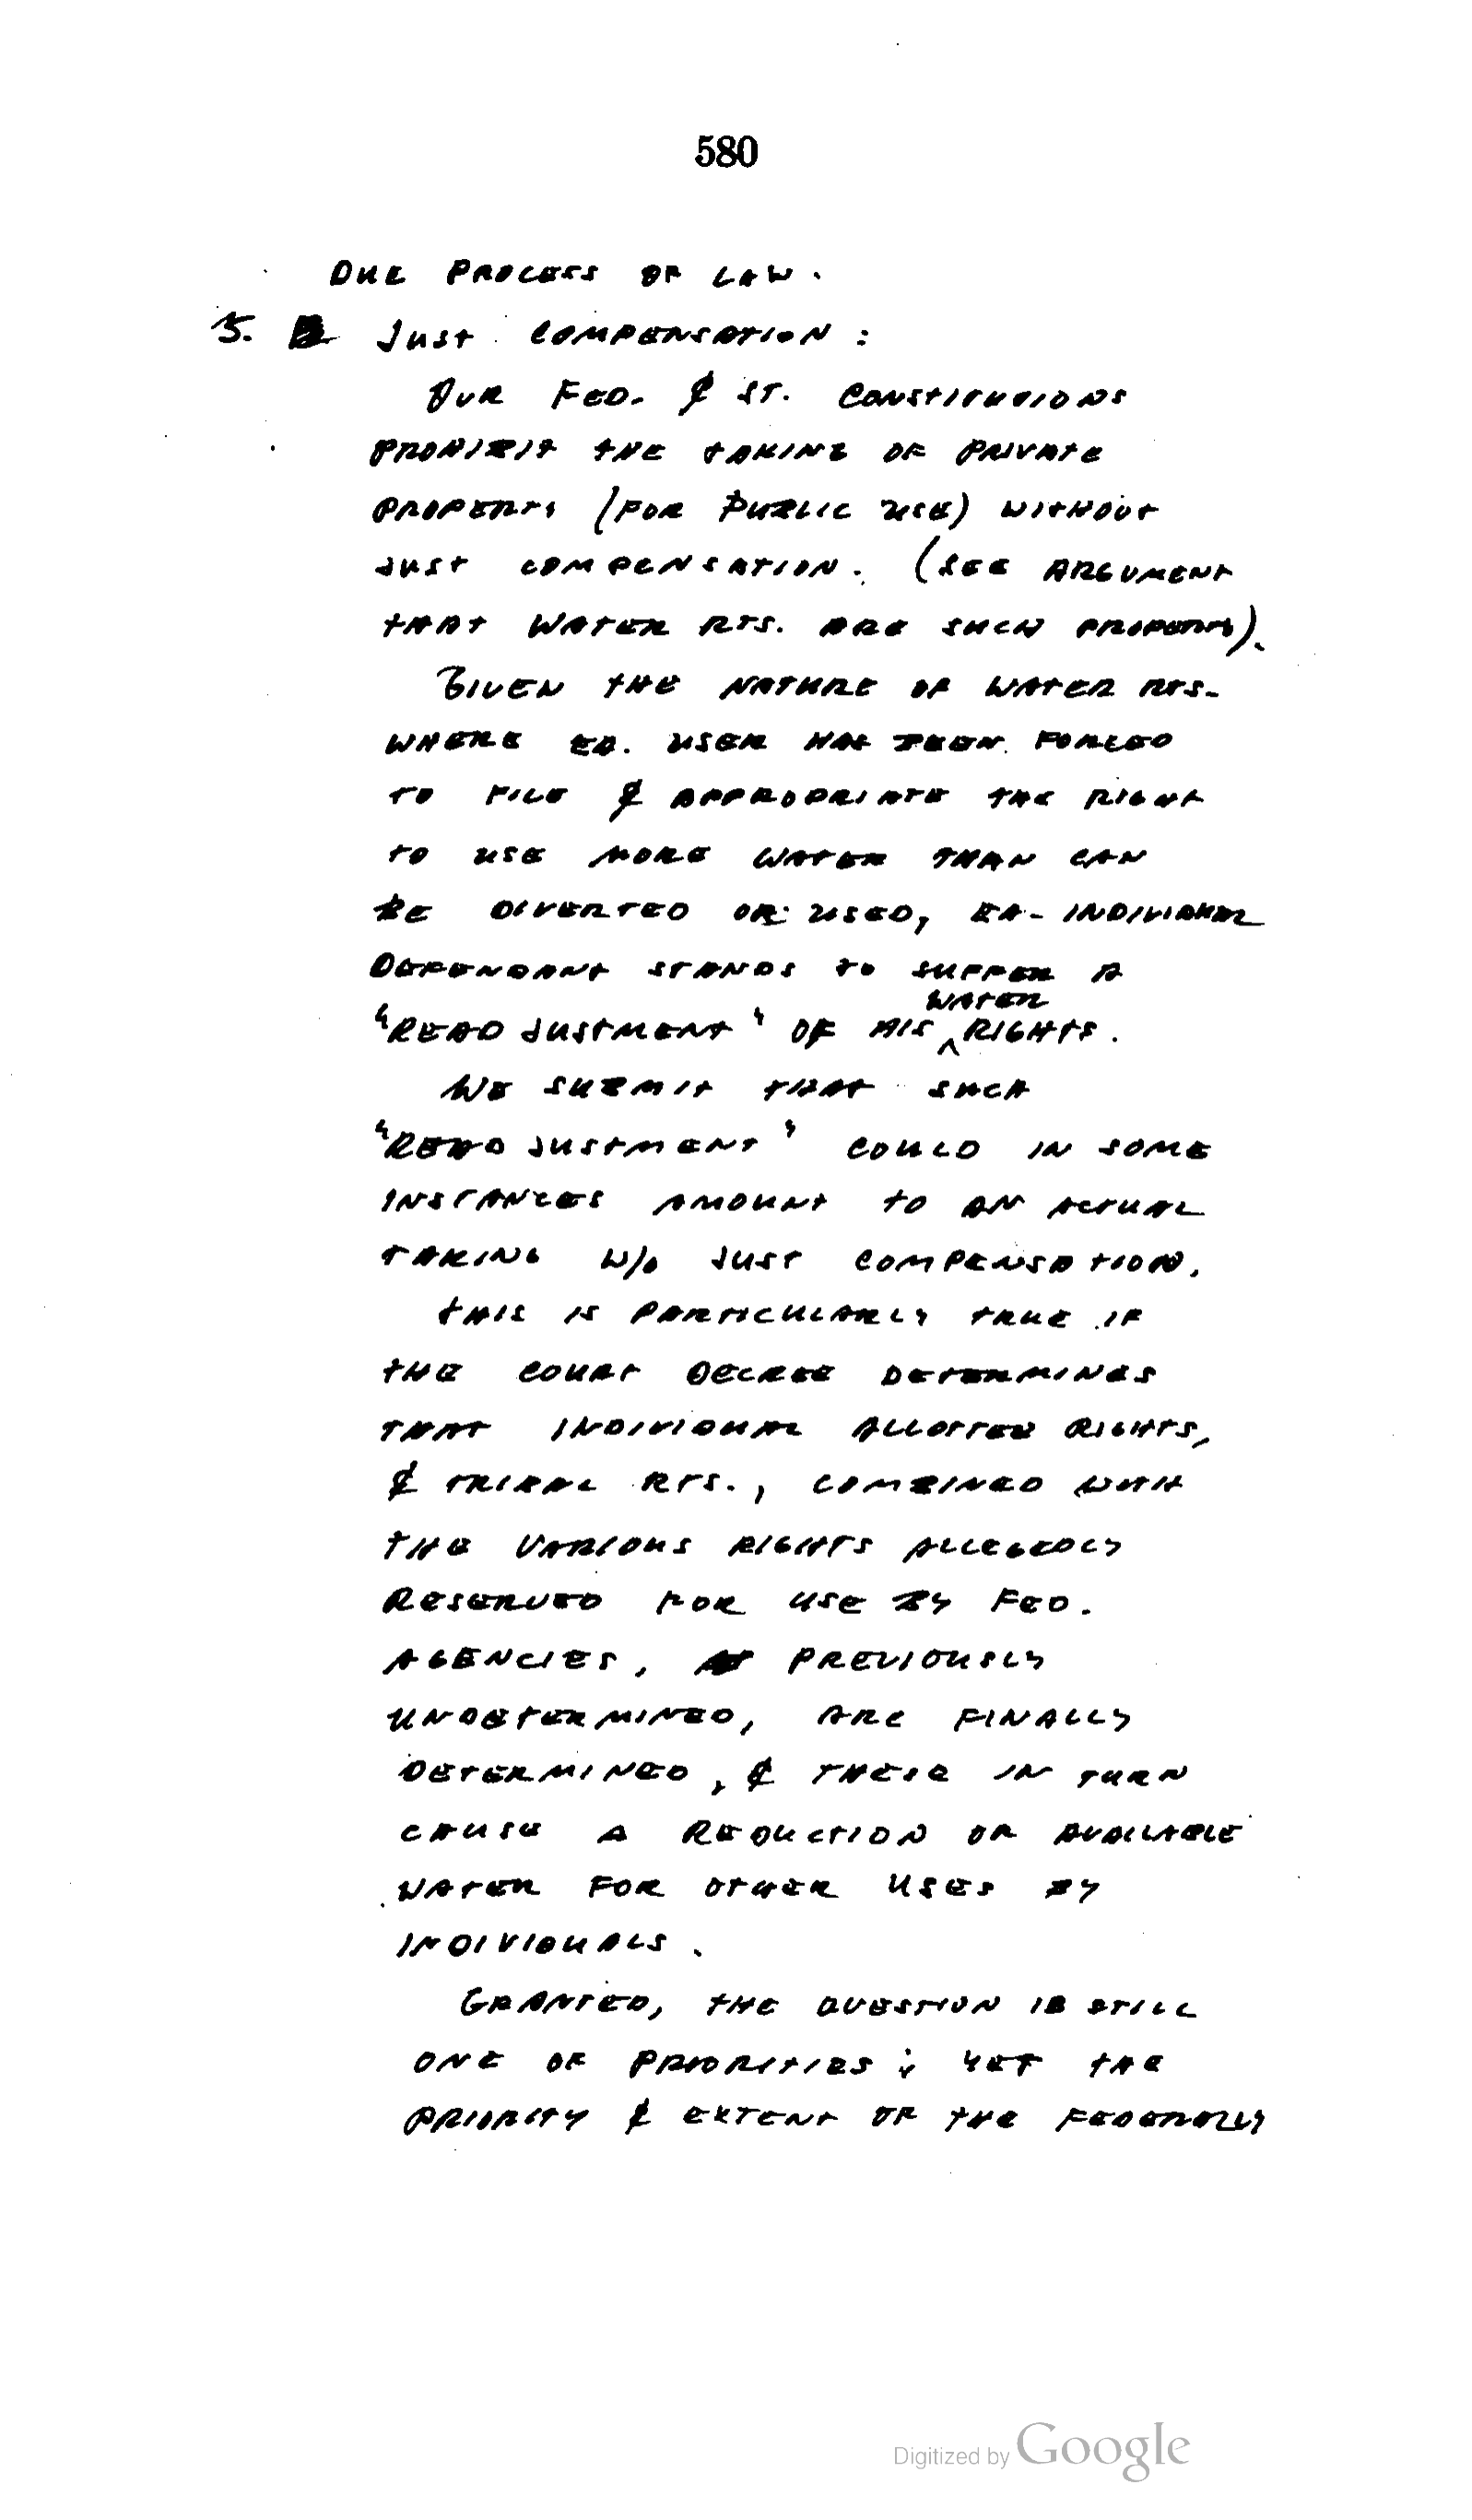 580
DUE PROCESS OF LAW.
5. JUST COMPENSATION:
OUR FED. & ST. CONSTITUTIONS
PROHIBIT THE TAKING OF PRIVATE
PROPERTY (FOR PUBLIC USE) WITHOUT
JUST COMPENSATION. (SEE ARGUMENT
THAT WATER RTS. ARE SUCH PROPERTY).
GIVEN THE NATURE OF WATER RTS.
WHERE EA. USER HAS BEEN FORCED
TO FILE & APPROPRIATE THE RIGHT
TO USE MORE WATER THAN CAN
BE DIVERTED OR USED, EA. INDIVIDUAL
DEFENDANT STANDS TO SUFFER A
WATER
"READJUSTMENT" OF HIS ^ RIGHTS.
WE SUBMIT THAT SUCH
"READJUSTMENT" COULD IN SOME
INSTANCES AMOUNT TO AN ACTUAL
TAKING W/O JUST COMPENSATION.
THIS IS PARTICULARLY TRUE IF
THE COURT DECREE DETERMINES
THAT INDIVIDUAL ALLOTTEE RIGHTS,
& TRIBAL RTS., COMBINED WITH
THE VARIOUS RIGHTS ALLEGEDLY
RESERVED FOR USE BY FED.
AGENCIES, PREVIOUSLY
UNDETERMINED, ARE FINALLY
DETERMINED, & THESE IN TURN
CAUSE A REDUCTION OF AVAILABLE
WATER FOR OTHER USES BY
INDIVIDUALS.
GRANTED, THE QUESTION IS STILL
ONE OF PRIORITIES; YET THE
PRIORITY & EXTENT OF THE FEDERALLY
Digitized by Google